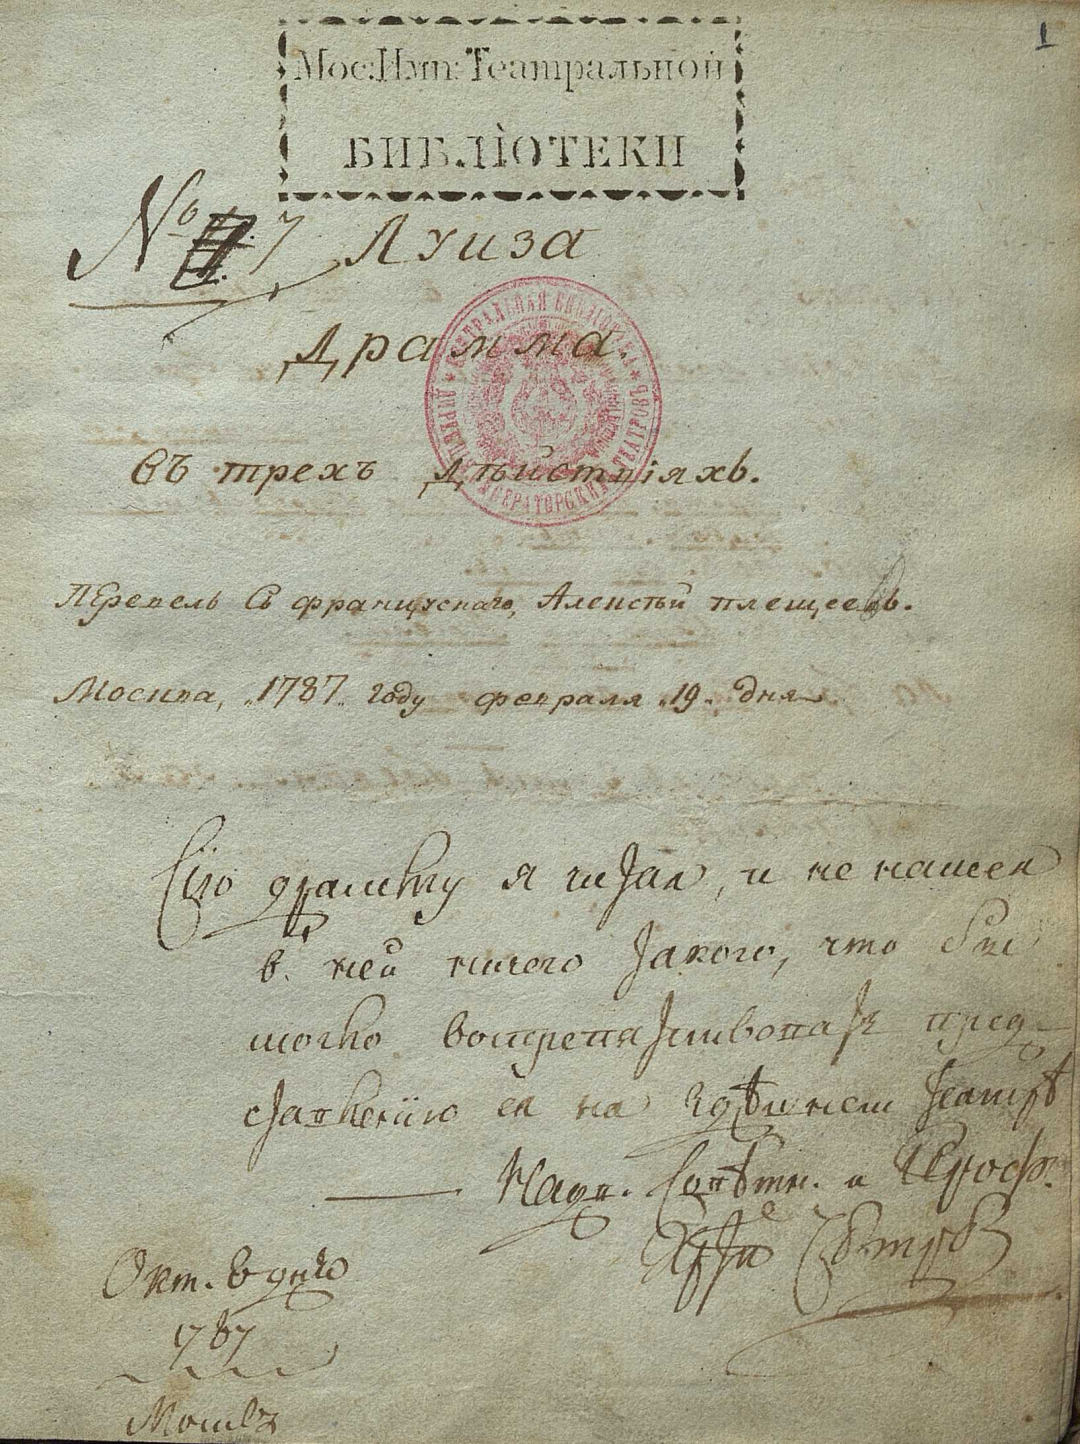 1
Мос: Имп: Театральной
БИБЛІОТЕКИ
№ 7 Луиза
Драмма.
въ трехъ дѣйствіяхъ.
Перевелъ съ французскаго, Алексѣй плещеевъ.
Москва, 1787 году февраля 19 дня
Сію драмму я читал, и не нашел
в ней ничего такого, что бы
могло воспрепятствовать пред-
ставленію ея на здѣшнем театрѣ
Надв. Совѣтн. и Проф.
Окт. 6 дня
1787
Москв